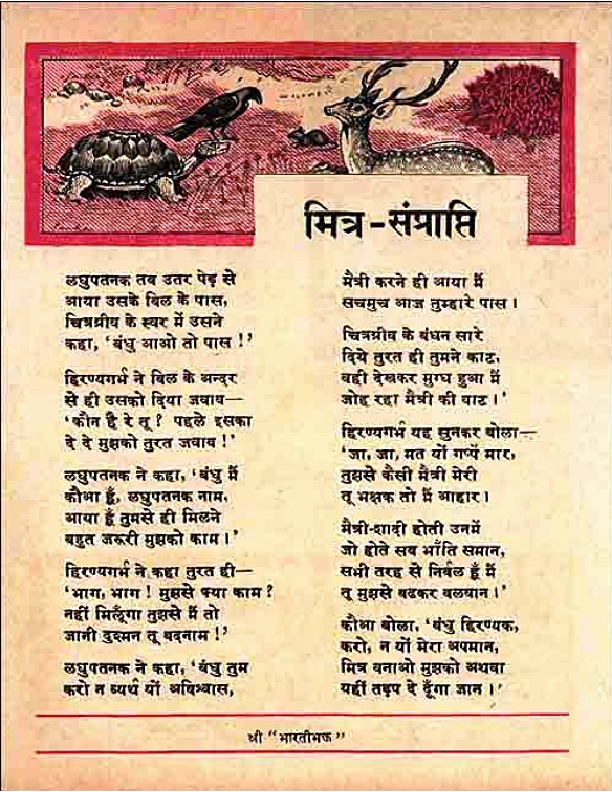 मित्र-संप्राप्ति
लघुपतनक तब उतर पेड़ से
आया उसके बिल के पास,
चित्रग्रीव के स्वर में उसने
कहा, 'बंधु आओ तो पास !'
हिरण्यगर्भ ने बिल के अन्दर
से ही उसको दिया जवाब—
'कौन है रे तू ? पहले इसका
दे दे मुझको तुरत जवाब !'
लघुपतनक ने कहा, 'बंधु मैं
कौआ हूँ, लघुपतनक नाम,
आया हूँ तुमसे ही मिलने
बहुत जरूरी मुझको काम।'
हिरण्यगर्भ ने कहा तुरत ही—
'भाग, भाग ! मुझसे क्या काम ?
नहीं मिलूँगा तुझसे मैं तो
जानी दुश्मन तू बदनाम !'
लघुपतनक ने कहा, 'बंधु तुम
करो न व्यर्थ यों अविश्वास,
मैत्री करने ही आया मैं
सचमुच आज तुम्हारे पास।
चित्रग्रीव के बंधन सारे
दिये तुरत ही तुमने काट,
वही देखकर मुग्ध हुआ मैं
जोह रहा मैत्री की बाट।'
हिरण्यगर्भ यह सुनकर बोला—
'जा, जा, मत यों गप्पें मार,
तुझसे कैसी मैत्री मेरी
तू भक्षक तो मैं आहार।
मैत्री-शादी होती उनमें
जो होते सब भाँति समान,
सभी तरह से निर्बल हूँ मैं
तू मुझसे बढकर बलवान।'
कौआ बोला, 'बंधु हिरण्यक,
करो, न यों मेरा अपमान,
मित्र बनाओ मुझको अथवा
यहीं तड़प दे दूँगा जान।'
श्री "भारतीभक्त"